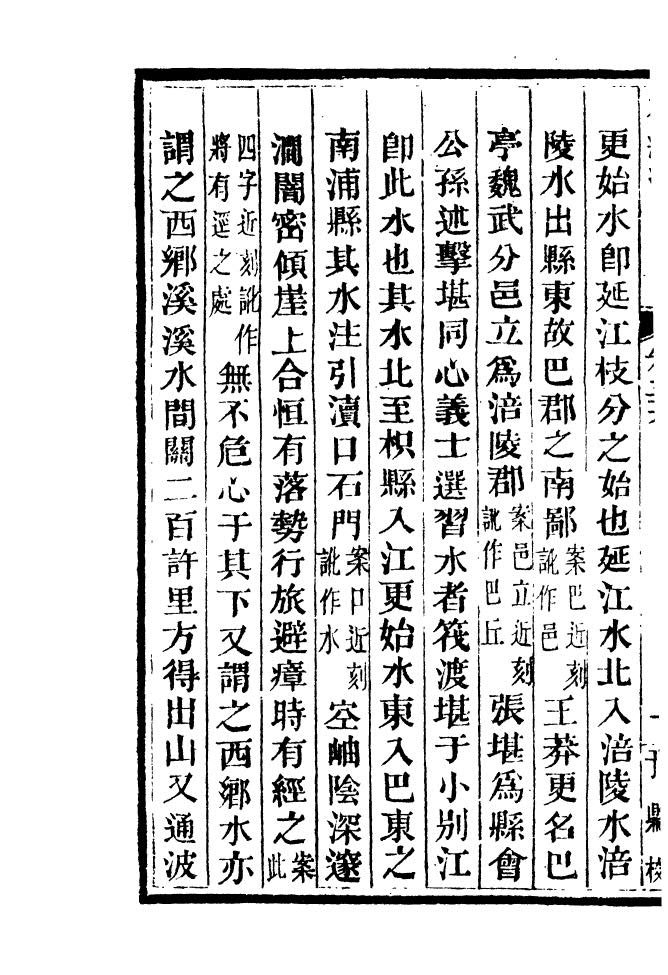 更始水卽延江枝分之始也延江水北入涪陵水涪
陵水出縣東故巴郡之南鄙案巴近刻訛作邑王莽更名巴
亭魏武分邑立爲涪陵郡案邑立近刻訛作巴丘張堪爲縣會
公孫述擊堪同心義士選習水者筏渡堪于小別江
卽此水也其水北至枳縣入江更始水東入巴東之
南浦縣其水注引瀆口石門案口近刻訛作水空岫陰深邃
澗闇密傾崖上合恒有落勢行旅避瘴時有經之案此
四字近刻訛作將有逕之處無不危心于其下又謂之西鄉水亦
謂之西鄉溪溪水間關二百許里方得出山又通波